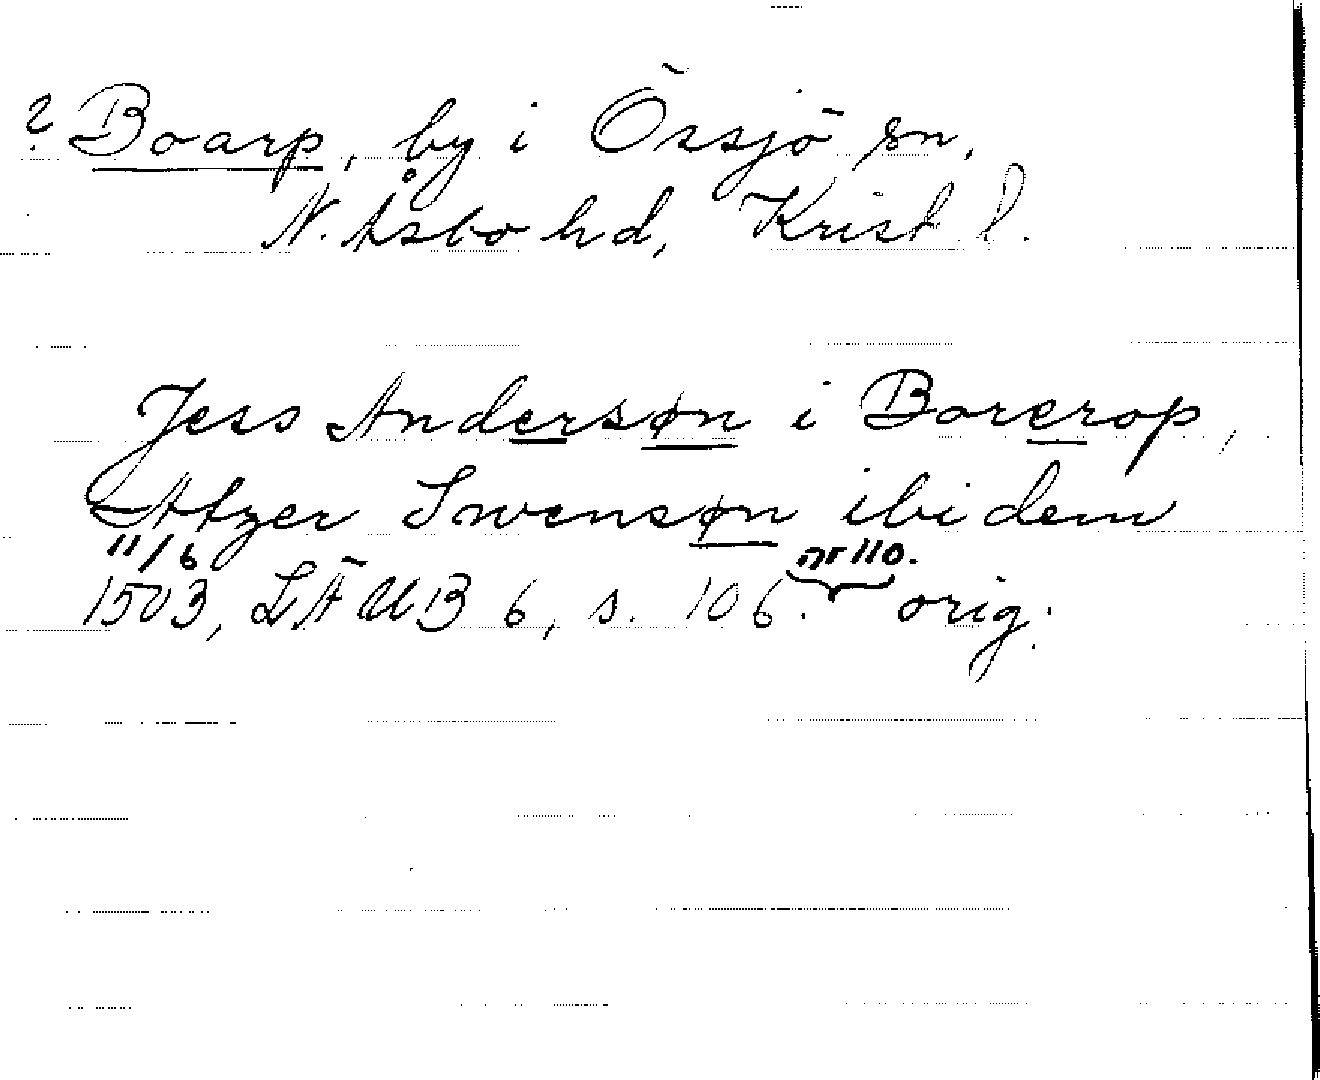 ? Boarp, by i Össjö sn,
N. Åsbo hd, Krist l.
Jess Andersøn i Borerop,
Atzer Swensøn ibidem
11/6 nr 110.
1503, LÄUB 6, s. 106. orig.